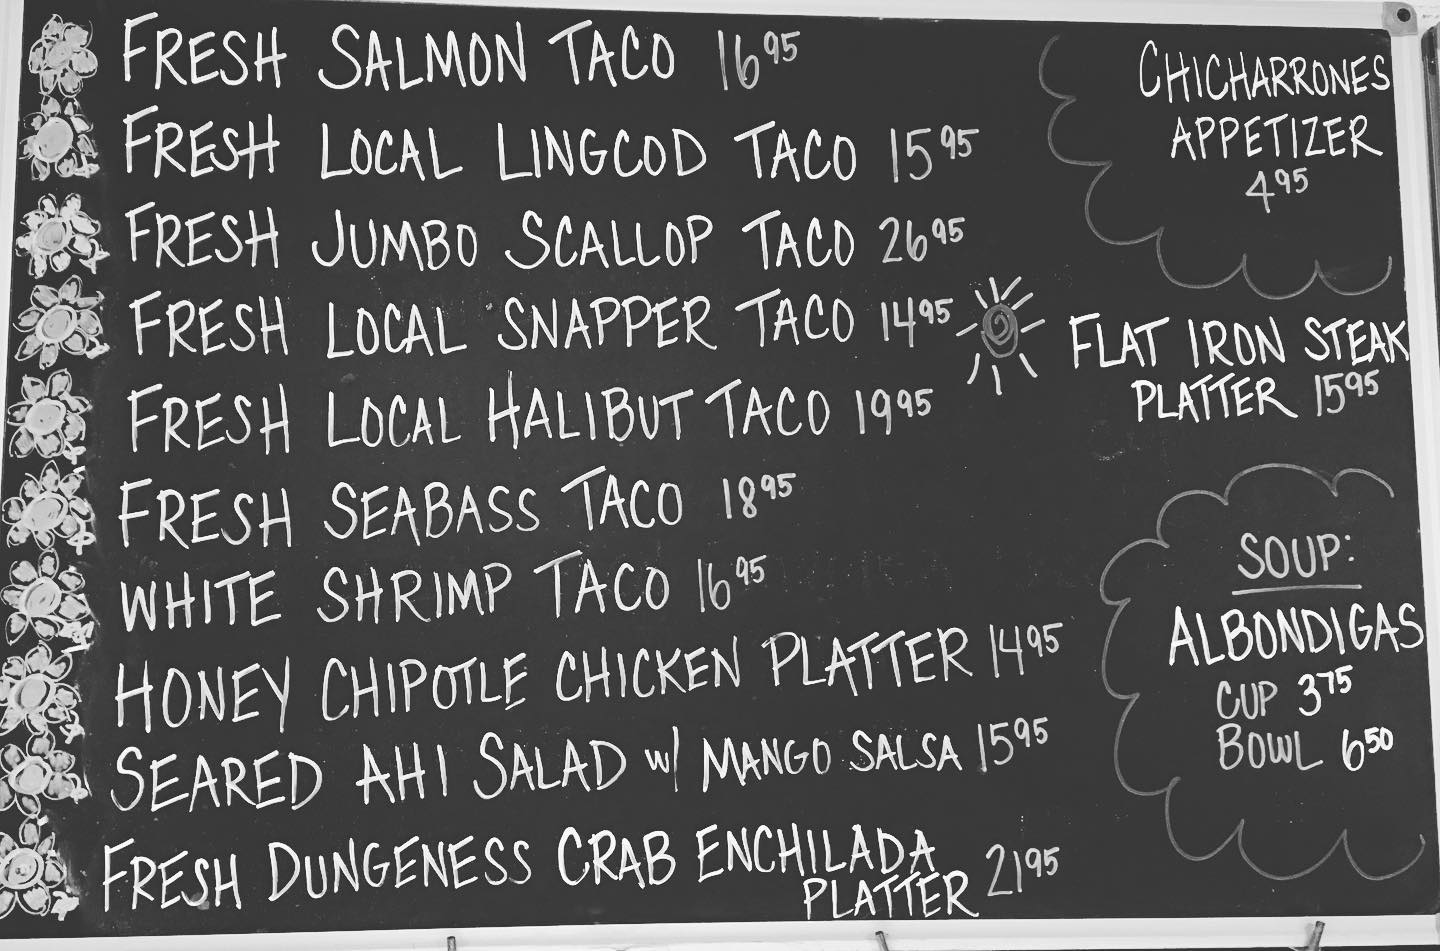 FRESH SALMON TACO 16 95
FRESH LOCAL LINGCOD TACO 15 95
FRESH JUMBO SCALLOP TACO 26 95
FRESH LOCAL SNAPPER TACO 14 95
FRESH LOCAL HALIBUT TACO 19 95
FRESH SEABASS TACO 18 95
WHITE SHRIMP TACO 16 95
HONEY CHIPOTLE CHICKEN PLATTER 14 95
SEARED AHI SALAD w/ MANGO SALSA 15 95
FRESH DUNGENESS CRAB ENCHILADA
PLATTER 21 95
CHICHARRONES
APPETIZER
4 95
FLAT IRON STEAK
PLATTER 15 95
SOUP:
ALBONDIGAS
CUP 3 75
BOWL 6 50